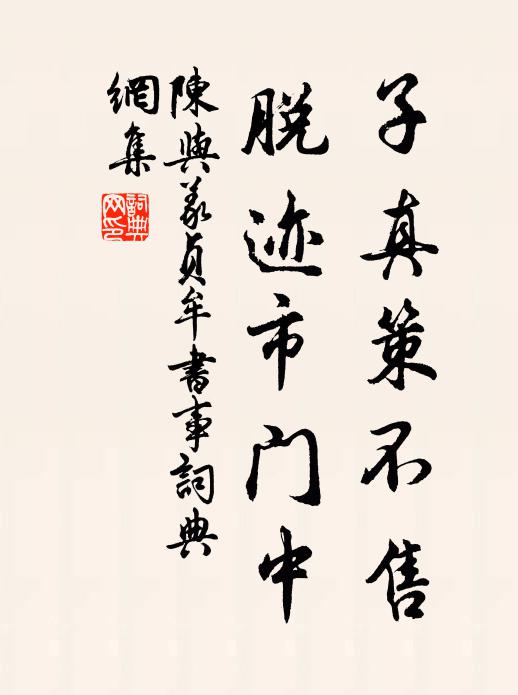 子真策不售
脱迹市门中
陳與義貞牟書事詞典
網集
詞典
网印